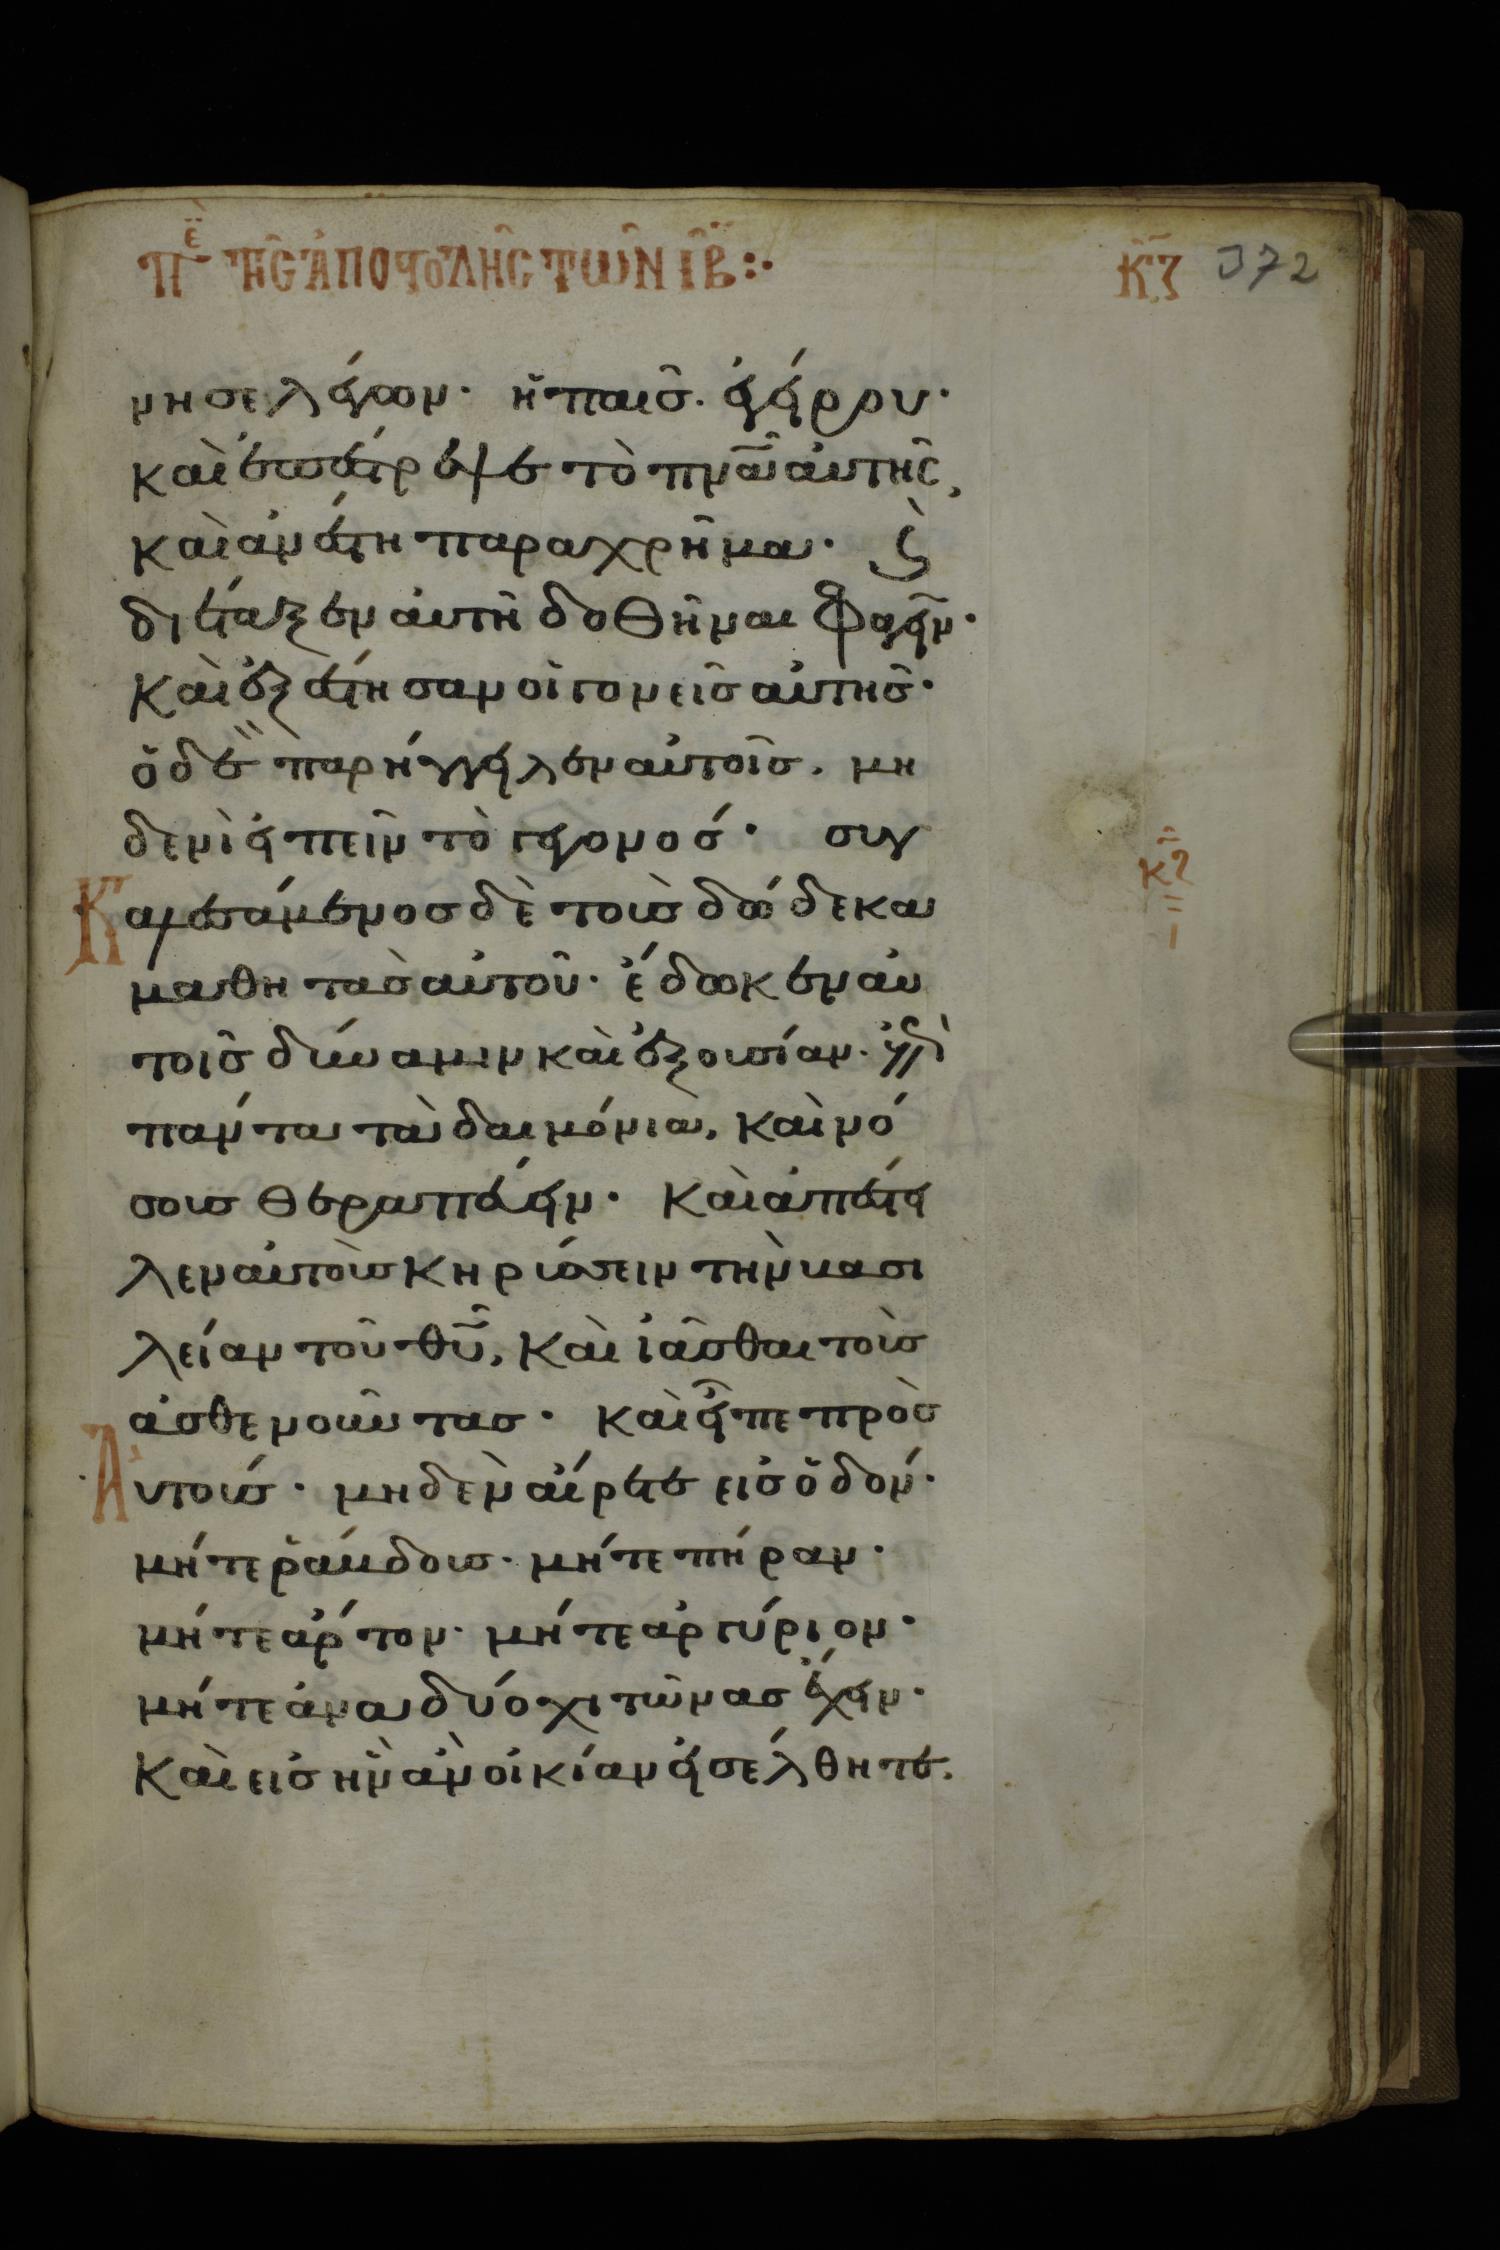 πε τῆς ἀποστολῆς τῶν ιβ κζ 372
νησε λέγων· ἡ παῖσ· ἐγείρου·
καὶ ἐπέστρεψε τὸ πνᾶ αὐτῆς,
καὶ ἀνέστη παραχρῆμα· ς
διέταξεν αὐτῆ δοθῆναι φαγεῖν·
Καὶ ἐξέστησαν οἱ γονεῖσ αὐτησ·
ὁ δὲ παρήγγειλεν αὐτοῖσ. μη
δενὶ εἰπεῖν τὸ γεγονοσ· συγ
Καλεσάμενοσ δὲ τοὺσ δώδεκα
μαθητασ αὐτοῦ· ἔδωκεν αὐ
τοῖσ δύναμιν καὶ ἐξουσίαν· ἐπὶ
πάντα τὰ δαιμόνια, καὶ νό
σουσ θεραπεύειν· Καὶ ἀπέστει
λεν αὐτοὺσ κηρύσσειν τὴν βασι
λείαν τοῦ θῦ, καὶ ἰᾶσθαι τοὺσ
ἀσθενοῦντασ· καὶ εἶπε πρὸσ
Αὐτούσ· μηδὲν αἴρετε εἰσ ὅδόν·
μήτε ῥάβδουσ· μήτε πήραν·
μήτε ἄρτον· μήτε ἀργύριον·
μήτε ἀνα δύο χιτῶνασ ἔχειν·
Καὶ εἰσ ἣν ἂν οἰκίαν εἰσέλθητε.
κζ